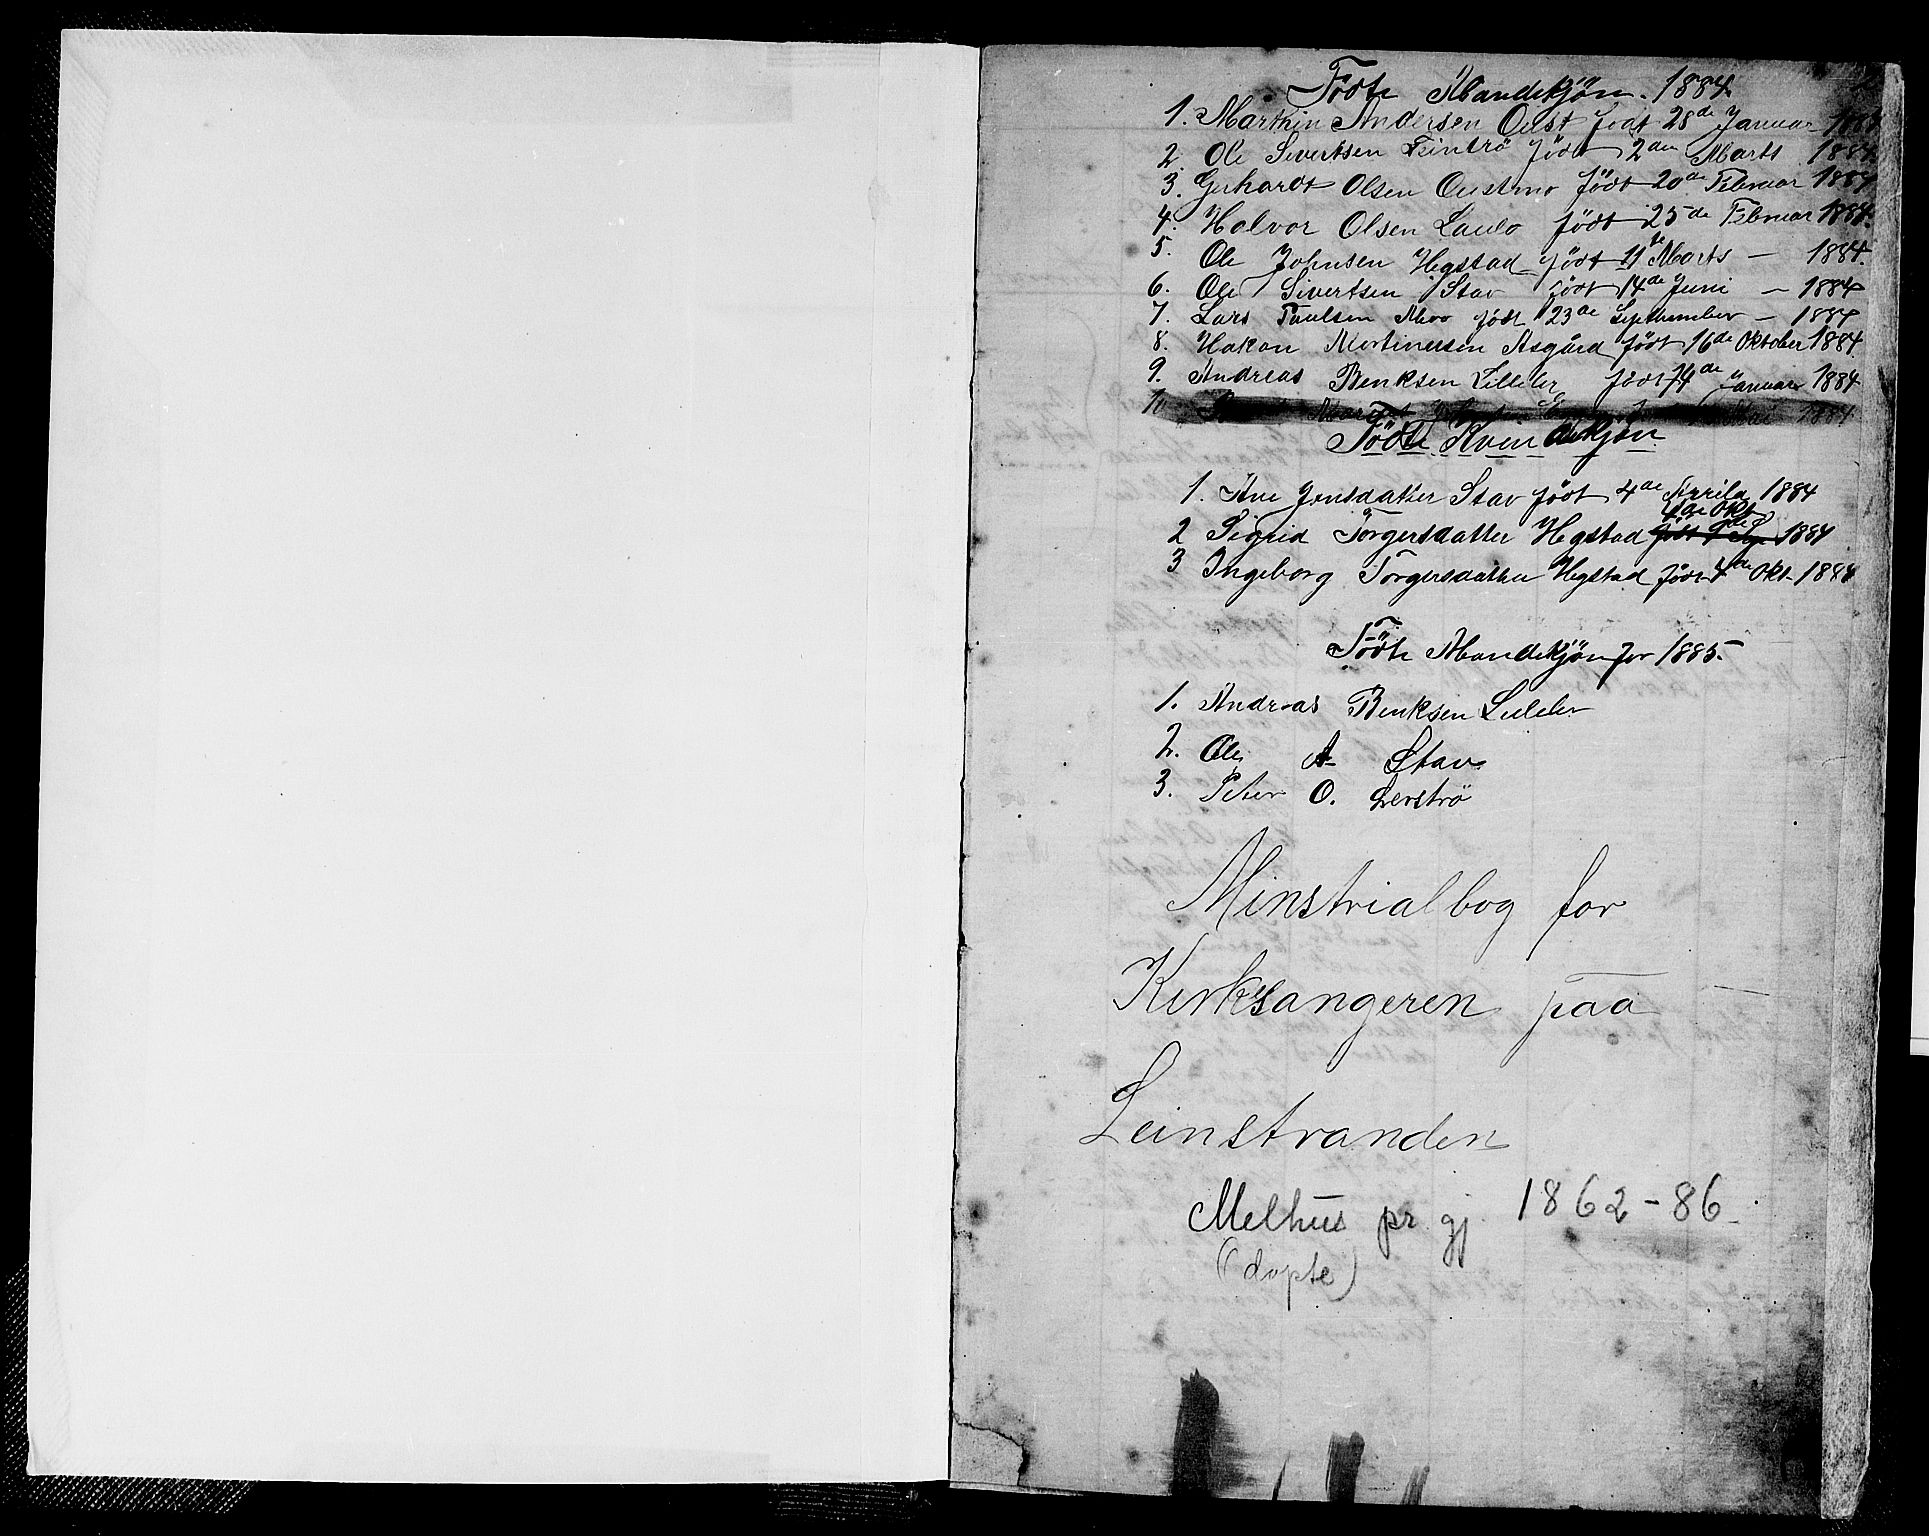 Födte Mandekjön. 1884.
1. Marthin Andersen Oust födt 28de Januar
2. Ole Sivertsen födt 2den Marts 1884
3. Gerhardt Olsen Oustmo födt 20de Februar 1884
4. Halvor Olsen Laulo födt 25de Februar 1884.
5. Ole Johnsen Hegstad födt 11te Marts — 1884.
6. Ole Sivertsen Stav födt 14de Juni — 1884
7. Lars Paulsen Moo födt 23de September — 1884
8. Hakon Martinusen Asgård födt 16de Oktober 1884
9. Andreas Benksen Lilleler födt 14de Januar 1884
10 1884
Födte Kvindekjön
1. Ane Jensdatter Stav födt 4de Aprila 1884
4de Okt
2 Sigrid Torgersdatter Hegstad födt 1884
3 Ingeborg Torgersdatter Hegstad födt 4de Okt. 1884
Födte Mandekjön for 1885.
1. Andreas Benksen Lileler
2. Ole A Stav
3. Peter O. Lerströ
Minstrialbog for
Kirksangeren paa
Leinstranden
Melhus pr. gj 1862-86
(døpte)